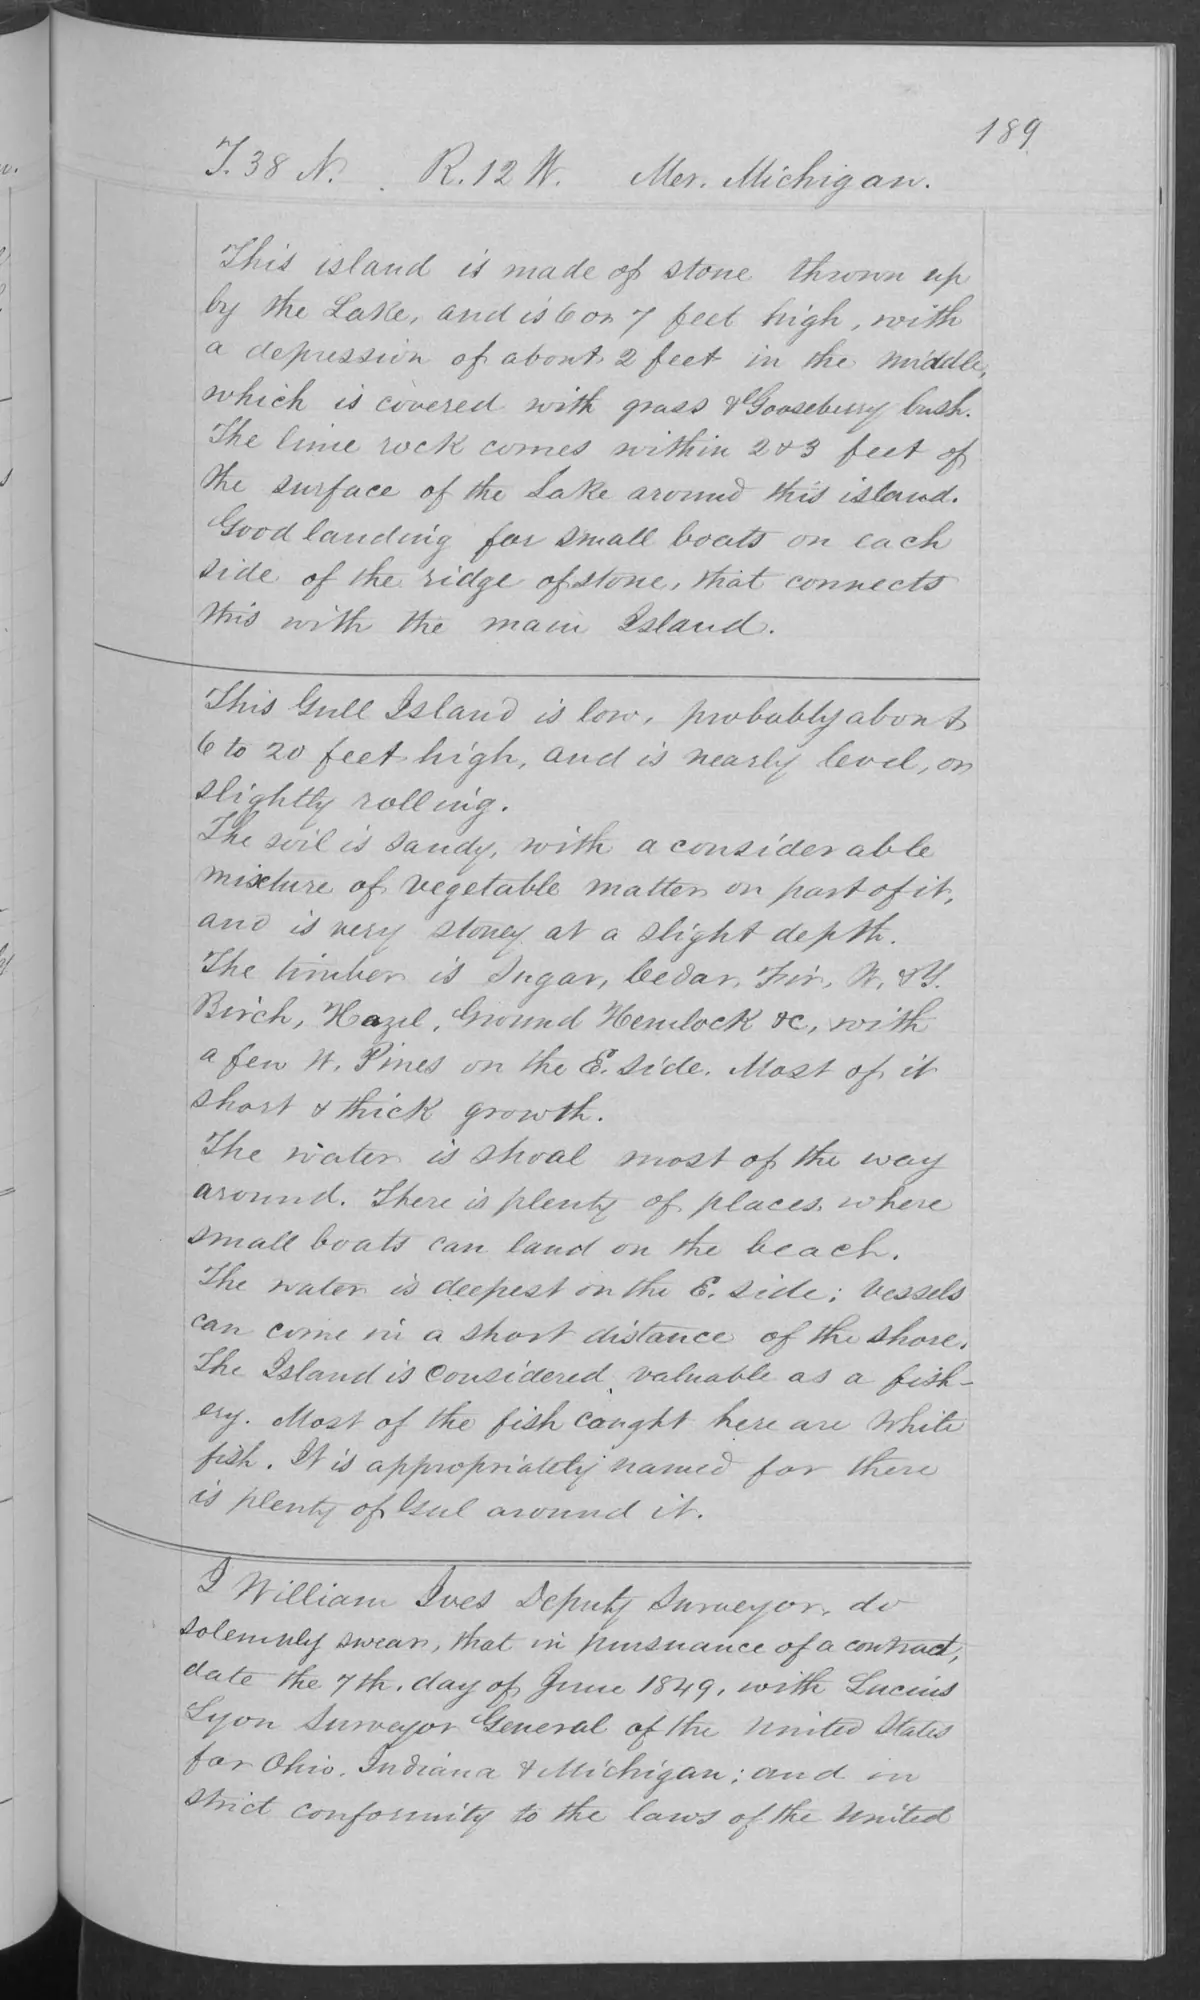 189
T. 38 N. R. 12 W. Mer. Michigan.
This island is made of stone thrown up
by the Lake, and is 6 or 7 feet high, with
a depression of about 2 feet in the middle,
which is covered with grass & Gooseberry bush.
The lime rock comes within 2 & 3 feet of
the surface of the Lake around this island.
Good landing for small boats on each
side of the ridge of stone, that connects
this with the main Island.
This Gull Island is low, probably about
6 to 20 feet high, and is nearly level, or
slightly rolling.
The soil is sandy, with a considerable
mixture of vegetable matter on part of it,
and is very stoney at a slight depth.
The timber is Sugar, Cedar, Fir, W. & Y.
Birch, Hazel, Ground Hemlock &c, with
a few W. Pines on the E. side. Most of it
short & thick growth.
The water is shoal most of the way
around. There is plenty of places where
small boats can land on the beach.
The water is deepest on the E. side; vessels
can come in a short distance of the shore.
The Island is considered valuable as a fish-
ery. Most of the fish caught here are White
fish. It is appropriately named for there
is plenty of Gul around it.
I William Ives Deputy Surveyor, do
solemnly swear, that in pursuance of a contract,
date the 7th. day of June 1849, with Lucius
Lyon Surveyor General of the United States
for Ohio, Indiana & Michigan; and in
strict conformity to the laws of the United